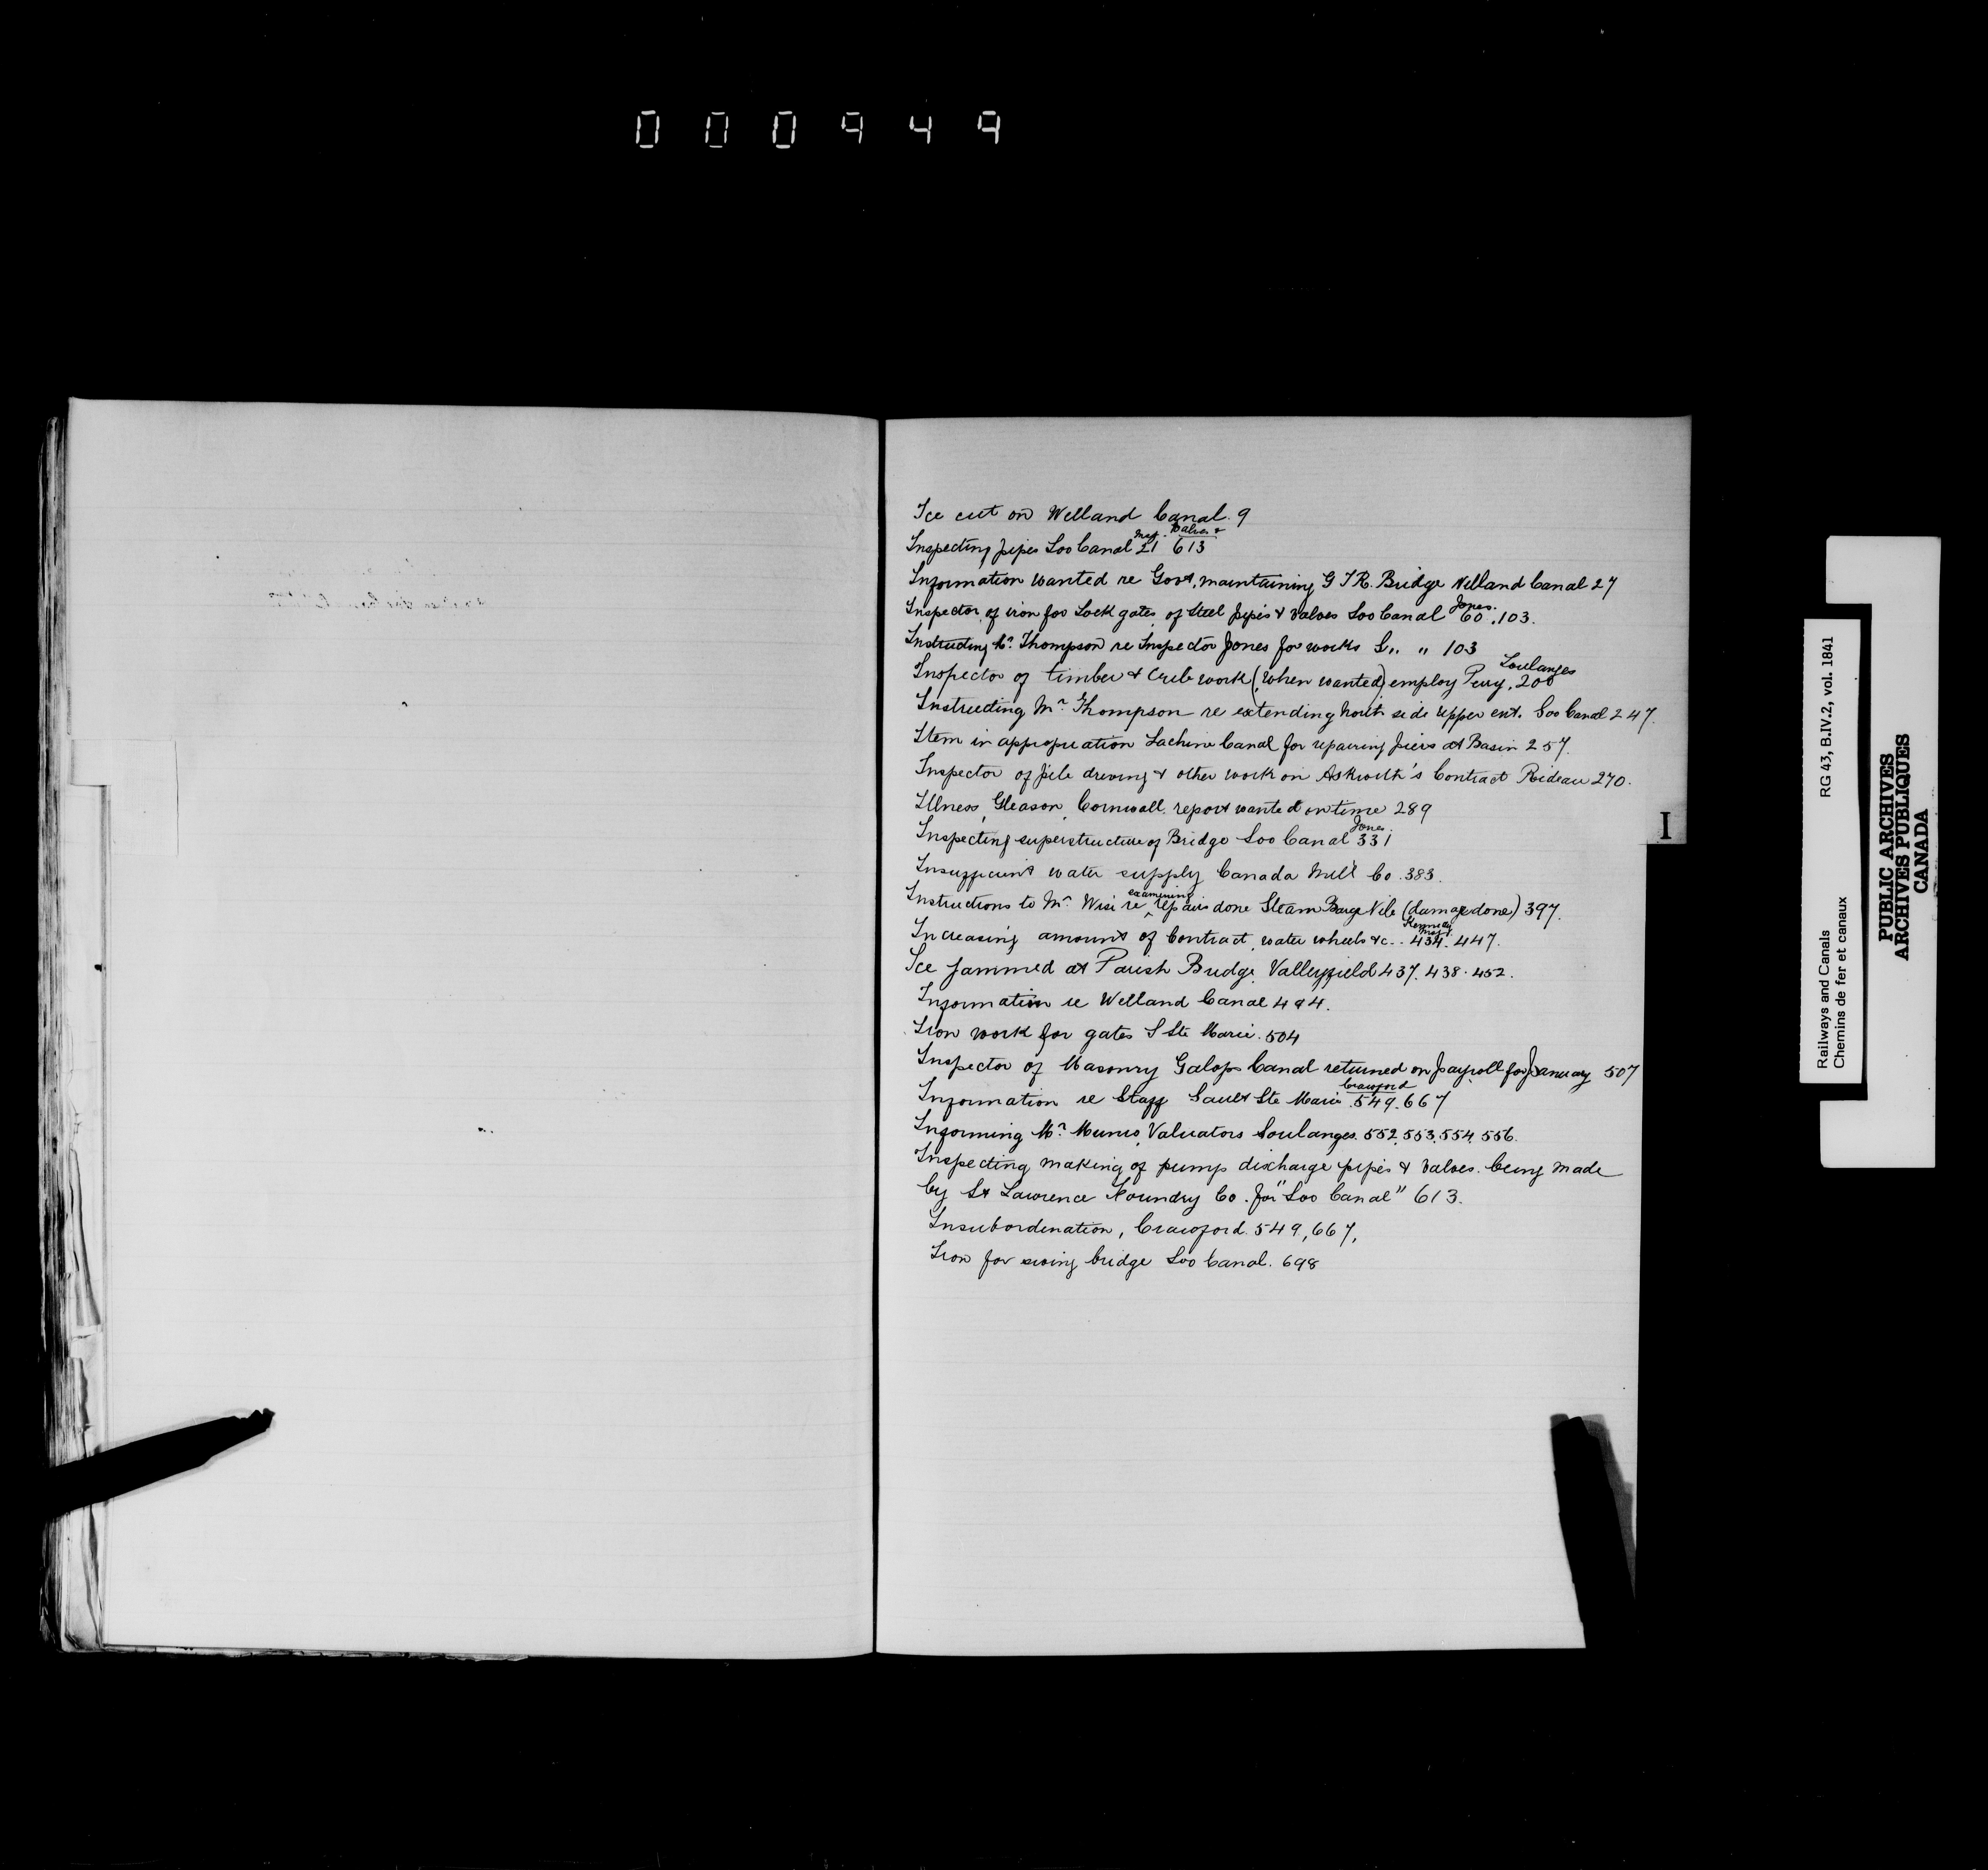 000949
Ice cut on Welland Canal. 9
Valves &
Inspecting pipes Soo Canal 21 613
Information wanted re Govt. maintaining G T R. Bridge Welland Canal 27
Jones.
Inspector of iron for Lock gates, of Steel pipes & valves Soo Canal 60. 103.
Instructing Mr. Thompson re Inspector Jones for works S,, ,, 103
Soulanges
Inspector of timber & Crib work (when wanted) employ Perry, 200
Instructing Mr. Thompson re extending North side Upper ent. Soo Canal 247.
Item in appropriation Lachine Canal for repairing piers at Basin 257.
Inspector of pile driving & other work on Askwith's Contract Rideau 270.
Illness, Gleason, Cornwall. report wanted on time 289
Jones.
Inspecting superstructure of Bridge Soo Canal 331
Insufficient water supply Canada Mill Co. 383.
examining
Instructions to Mr. Wise re ^ repairs done Steam Barge Nile (damage done) 397.
Kennedy
Increasing amount of Contract, water wheels &c.. 434. 447.
Ice jammed at Parish Bridge Valleyfield 437. 438. 452.
Information re Welland Canal 494.
Iron work for gates S Ste Marie. 504
Inspector of Masonry Galops Canal returned on payroll for January 507
Crawford
Information re Staff Sault Ste Marie. 549. 667
Informing Mr. Munro, Valuators Soulanges. 552. 553. 554. 556.
Inspecting making of pump discharge pipes & valves. being made
by St Lawrence Foundry Co. for "Soo Canal" 613.
Insubordination, Crawford. 549, 667,
Iron for swing bridge Soo Canal. 698
I
Railways and Canals RG 43, B.IV.2, vol. 1841
Chemins de fer et canaux
PUBLIC ARCHIVES
ARCHIVES PUBLIQUES
CANADA